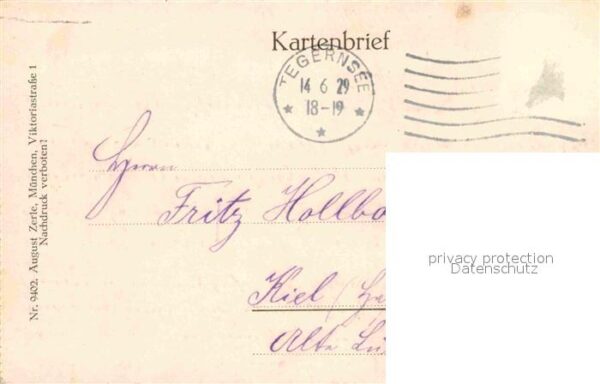 Kartenbrief
TEGERNSEE
14 6 29
18-19
Nr. 9402. August Zerle, München, Viktoriastraße 1
Nachdruck verboten!
Herrn
Fritz Hollbo
Kiel (Ha
Alte Lü
privacy protection
Datenschutz